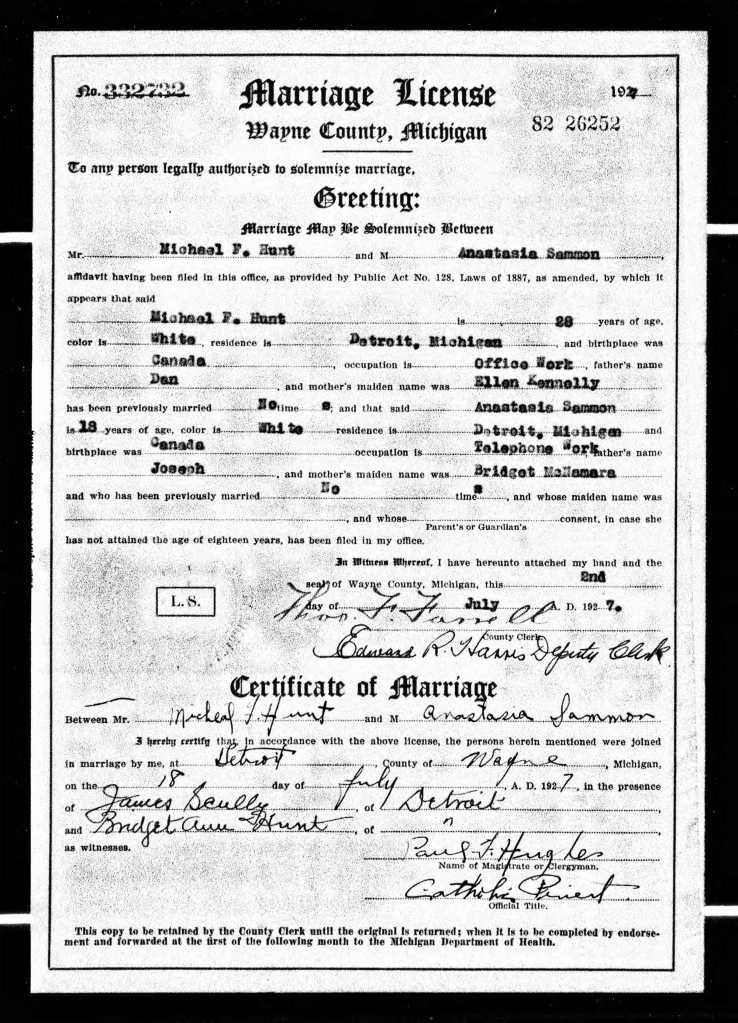 No. 332732 Marriage License 1927
Wayne County, Michigan 82 26252
To any person legally authorized to solemnize marriage,
Greeting:
Marriage May Be Solemnized Between
Mr. Michael F. Hunt and M Anastasia Sammon,
affidavit having been filed in this office, as provided by Public Act No. 128, Laws of 1887, as amended, by which it
appears that said
Michael F. Hunt is 28 years of age,
color is White, residence is Detroit, Michigan, and birthplace was
Canada, occupation is Office Work, father's name
Dan, and mother's maiden name was Ellen Kennelly
has been previously married No time s; and that said Anastasia Sammon
is 18 years of age, color is White residence is Detroit, Michigan and
birthplace was Canada occupation is Telephone Work, father's name
Joseph, and mother's maiden name was Bridget McNamara
and who has been previously married No time s, and whose maiden name was
, and whose consent, in case she
Parent's or Guardian's
has not attained the age of eighteen years, has been filed in my office.
In Witness Whereof, I have hereunto attached my hand and the
seal of Wayne County, Michigan, this 2nd
L.S.
day of July A. D. 1927.
Thos. F. Farrell
County Clerk
Edward R. Harris Deputy Clerk.
Certificate of Marriage
Between Mr. Micheal F. Hunt and M Anastasia Sammon
I hereby certify that, in accordance with the above license, the persons herein mentioned were joined
in marriage by me, at Detroit, County of Wayne, Michigan,
on the 18 day of July, A. D. 1927, in the presence
of James Scully, of Detroit,
and Bridget Ann Hunt, of "
as witnesses.
Paul F. Hughes
Name of Magistrate or Clergyman.
Catholic Priest.
Official Title.
This copy to be retained by the County Clerk until the original is returned; when it is to be completed by endorse-
ment and forwarded at the first of the following month to the Michigan Department of Health.